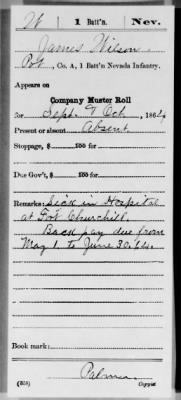 W | 1 Batt'n. | Nev.
James Wilson
Pvt, Co. A, 1 Batt'n Nevada Infantry.
Appears on
Company Muster Roll
for Sept. & Oct, 1864.
Present or absent Absent
Stoppage, $ 100 for
Due Gov't, $ 100 for
Remarks: Sick in Hospital
at Fort Churchill.
Back pay due from
May 1. to June 30. 64.
Book mark:
Palmer
(358) Copyist.